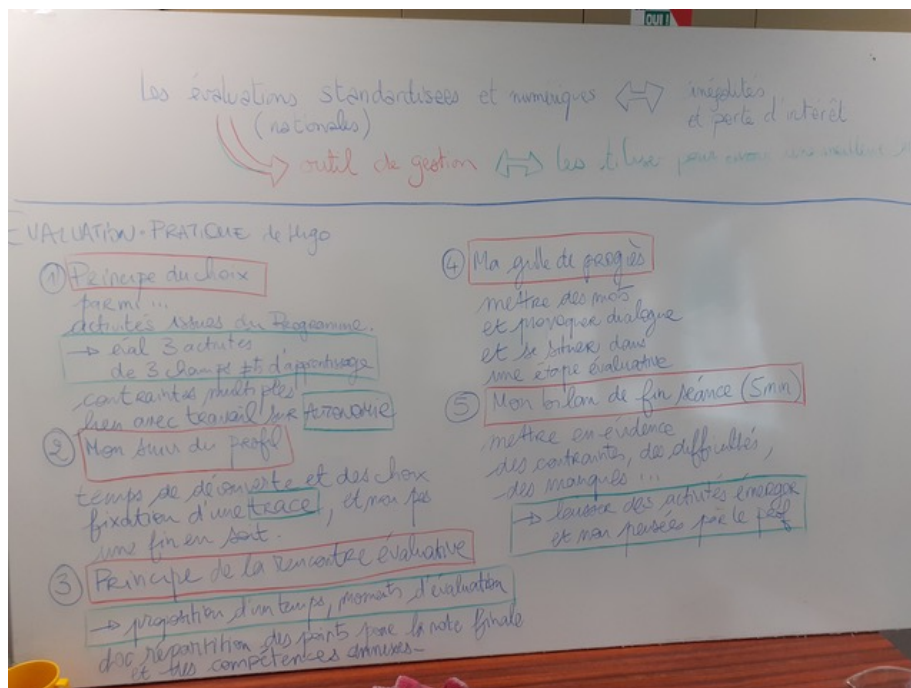 OUI !
Les évaluations standardisées et numériques ⇔ inégalités
(nationales) et perte d'intérêt
→ outil de gestion ⇔ les tiluse pour avoir une
EVALUATION-PRATIQUE de Hugo
① Principe du choix
parmi ...
activités issues du Programme.
→ éval 3 activités
de 3 champs ≠ts d'apprentissage
contraintes multiples
lien avec travail sur AUTONOMIE
② Mon suivi du profil
temps de découverte et des choix
fixation d'une trace, et non pas
une fin en soit.
③ Principe de la rencontre évaluative
→ proposition d'un temps, moments d'évaluation
doc répartition des points pour la note finale
et des compétences annexes-
④ Ma grille de progrès
mettre des mots
et provoquer dialogue
et se situer dans
une étape évaluative
⑤ Mon bilan de fin séance (5min)
mettre en évidence
des contraintes, des difficultés,
des manques ...
→ laisser des activités émerger
et non pensées par le prof